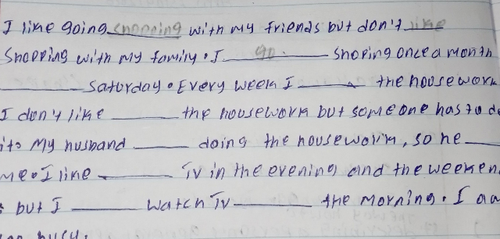 I like going shopping with my friends but don't like
Shopping with my family. I go ______ Shoping once a month
______ Saturday. Every week I ______ the housework
I don't like ______ the housework but someone has to do
it. My husband ______ doing the housework, so he ______
me. I like ______ TV in the evening and the weeken
but I ______ watch TV ______ the morning. I a
busy.